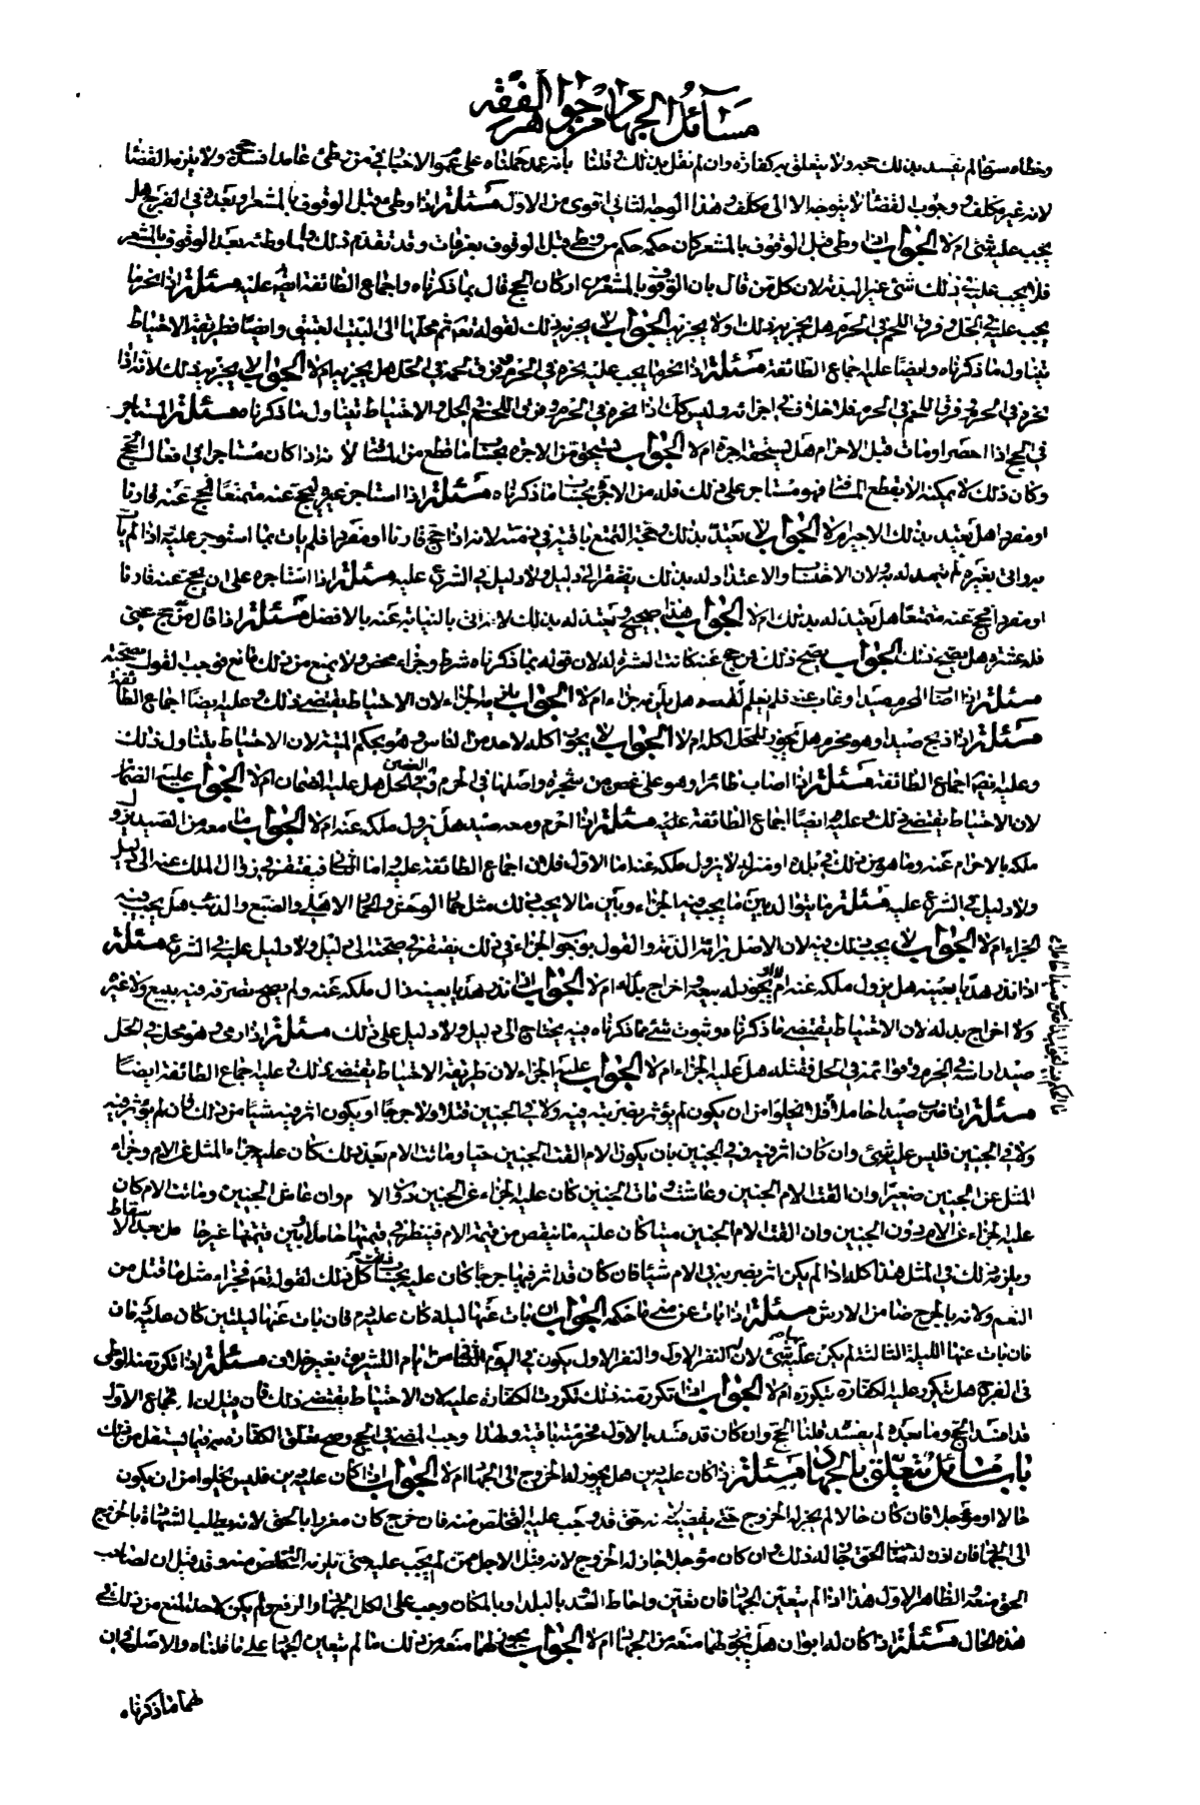 مسائل الجهاد من جواهر الفقه
وخطاه سقط لم يفسد بذلك حجه ولا يتعلق به كفارة وان لم نقل بذلك وقلنا بانه عمد حملناه على عموم الاخبار في من وطئ عامدا فسد حجه ولا يلزمه القضاء
لانه غير مكلف ووجوب القضاء لا يتوجه الا الى مكلف وهذا الوجه الثاني اقوى من الاول مسئلة اذا وطئ قبل الوقوف بالمشعر وتعمد في الفرج هل
يجب عليه شئ ام لا الجواب اذا وطئ قبل الوقوف بالمشعر كان حكمه حكم من وطئ قبل الوقوف بعرفات وقد تقدم ذلك واما وطئه بعد الوقوف بالمشعر
فلا يجب عليه في ذلك شئ غير البدنة لان كل من قال بان الوقوف بالمشعر من اركان الحج قال بما ذكرناه واجماع الطائفة ايضا عليه مسئلة اذا نحر ما
يجب عليه في الحل وفرق اللحم في الحرم هل يجزيه ذلك او لا يجزيه الجواب لا يجزيه ذلك لقوله تعالى ثم محلها الى البيت العتيق وايضا فطريقة الاحتياط
تتناول ما ذكرناه وايضا عليه اجماع الطائفة مسئلة اذا نحر ما يجب عليه نحره في الحرم وفرق لحمه في الحل هل يجزيه ام لا الجواب لا يجزيه ذلك لانه اذا
نحر في الحرم وفرق اللحم في الحرم فلا خلاف في اجزائه وليس كذلك اذا نحر في الحرم وفرق اللحم في الحل والاحتياط يتناول ما ذكرناه مسئلة المستاجر
في الحج اذا احصر او مات قبل الاحرام هل يستحق اجرة ام لا الجواب يستحق من الاجرة بحساب ما قطع من المسافة لانه اذا كان مستاجرا في افعال الحج
وكان ذلك لا يمكنه الا بقطع المسافة فهو مستاجر على ذلك فله من الاجرة بحساب ما ذكرناه مسئلة اذا استاجر غيره ليحج عنه متمتعا فحج عنه قارنا
او مفردا هل يعتد بذلك الاجير ام لا الجواب لا يعتد بذلك وحجة التمتع باقية في ذمته لانه اذا حج قارنا او مفردا فلم يات بما استوجر عليه اذا لم يات
به واتى بغيره لم يعتد له به ولان الاحتساب والاعتداد له بذلك يفتقر الى دليل ولا دليل في الشرع عليه مسئلة اذا استاجره على ان يحج عنه قارنا
او مفردا فحج عنه متمتعا هل يعتد له بذلك ام لا الجواب هذا صحيح ويعتد له بذلك لانه اتى بالنيابة عنه بالافضل مسئلة اذا قال من حج عني
فله عشرة هل يصح ذلك الجواب يصح ذلك فمن حج عنه كانت العشرة له لان قوله بما ذكرناه شرط وجزاء محض ولا يمنع من ذلك مانع فوجب القول بصحته
مسئلة اذا اصاب المحرم صيدا وغاب عنه فلم يعلم هل يلزمه جزاء ام لا الجواب يلزمه الجزاء لان الاحتياط يقتضي ذلك وعليه ايضا اجماع الطائفة
مسئلة اذا ذبح صيدا وهو محرم هل يجوز للمحل اكله ام لا الجواب لا يجوز اكله لاحد من الناس وهو بحكم الميتة لان الاحتياط يتناول ذلك
وعليه ايضا اجماع الطائفة مسئلة اذا اصاب طائرا وهو على غصن من شجرة واصلها في الحرم والغصن في الحل هل عليه الضمان ام لا الجواب عليه الضمان
لان الاحتياط يقتضي ذلك وعليه ايضا اجماع الطائفة عليه مسئلة اذا احرم ومعه صيد هل يزول ملكه عنه ام لا الجواب ما معه من الصيد يزول
ملكه بالاحرام عنه وما هو من ذلك في بلده او منزله لا يزول ملكه عنه اما الاول فلان اجماع الطائفة عليه واما الثاني فيفتقر في زوال الملك عنه الى دليل
ولا دليل في الشرع عليه مسئلة ما يتوالد بين ما يجب فيه الجزاء وبين ما لا يجب ذلك مثل حمار الوحش والحمار الاهلي والضبع والذئب هل يجب فيه
الجزاء ام لا الجواب لا يجب ذلك فيه لان الاصل براءة الذمة والقول بوجوب الجزاء في ذلك يفتقر في صحته الى دليل ولا دليل عليه في الشرع مسئلة
اذا نذر هديا بعينه هل يزول ملكه عنه ام لا ويجوز له بيعه واخراج بدله ام لا الجواب اذا نذر هديا بعينه زال ملكه عنه ولم يصح تصرفه فيه ببيع ولا غيره
ولا اخراج بدله لان الاحتياط يقتضي ما ذكرناه وثبوت شئ مما ذكرناه فيه يحتاج الى دليل ولا دليل على ذلك مسئلة اذا رمى وهو محل في الحل
صيدا راسه في الحرم وقوائمه في الحل فقتله هل عليه الجزاء ام لا الجواب عليه الجزاء لان طريقة الاحتياط يقتضي ذلك وعليه اجماع الطائفة ايضا
مسئلة اذا ضرب صيدا حاملا فلا يخلوا من ان يكون لم يؤثر بضربه فيه ولا في الجنين قتلا ولا جرحا او يكون اثر فيه شيئا من ذلك فان لم يؤثر فيه
ولا في الجنين فليس عليه شئ وان كان اثر فيه وفي الجنين بان يكون الام القت الجنين حيا وماتت الام بعد ذلك كان عليه جزاء المثل عن الام وجزاء
المثل عن الجنين صغيرا وان القت الام الجنين وعاشت ومات الجنين كان عليه الجزاء عن الجنين دون الام وان عاش الجنين وماتت الام كان
عليه الجزاء عن الام دون الجنين وان القت الام الجنين ميتا كان عليه ما ينقص من قيمة الام فينظر في قيمتها حاملا وبين قيمتها غير حامل بعد الاسقاط
ويلزمه ذلك في المثل هذا كله اذا لم يكن اثر بضربه في الام شيئا فان كان قد اثر فيها جرحا كان عليه بحساب كل ذلك لقوله تعالى فجزاء مثل ما قتل من
النعم ولانه بالجرح ضامن الارش مسئلة اذا بات عن منى ما حكمه الجواب ان بات عنها ليلة كان عليه دم فان بات عنها ليلتين كان عليه دمان
فان بات عنها الليلة الثالثة لم يكن عليه شئ لان النفر الاول والنفر الاول يكون في اليوم الثاني من ايام التشريق بغير خلاف مسئلة اذا تكرر منه الوطئ
في الفرج هل يتكرر عليه الكفارة بتكرره ام لا الجواب اذا تكرر منه ذلك تكررت الكفارة عليه لان الاحتياط يقتضي ذلك فان قيل ان الجماع الاول
قد افسد الحج وما بعده لم يفسد قلنا الحج وان كان قد فسد بالاول فحرمته باقية ولهذا وجب المضي في الحج وصح تعلق الكفارة به فيما يستقبل من ذلك
باب مسائل تتعلق بالجهاد مسئلة اذا كان عليه دين هل يجوز له الخروج الى الجهاد ام لا الجواب اذا كان عليه دين فليس يخلوا من ان يكون
حالا او مؤجلا فان كان حالا لم يجز له الخروج حتى يقضيه لانه حق قد وجب عليه التخلص منه فان خرج كان مغررا بالحق لانه يطلب الشهادة بالخروج
الى الجهاد فان اذن له صاحب الحق جاز له ذلك وان كان مؤجلا جاز له الخروج لانه قبل الاجل ممن لم يجب عليه حق يلزمه التخلص منه وقد قيل ان لصاحب
الحق منعه الظاهر الاول هذا اذا لم يتعين الجهاد فان تعين واحاط العدو بالبلد او بالمكان وجب على الكل الجهاد والدفع ولم يكن لاحد المنع من ذلك في
هذه الحال مسئلة اذا كان له ابوان هل يجوز لهما منعه من الجهاد ام لا الجواب يجوز لهما منعه من ذلك ما لم يتعين الجهاد على ما قلناه والاصل في ان
لهما ما ذكرناه